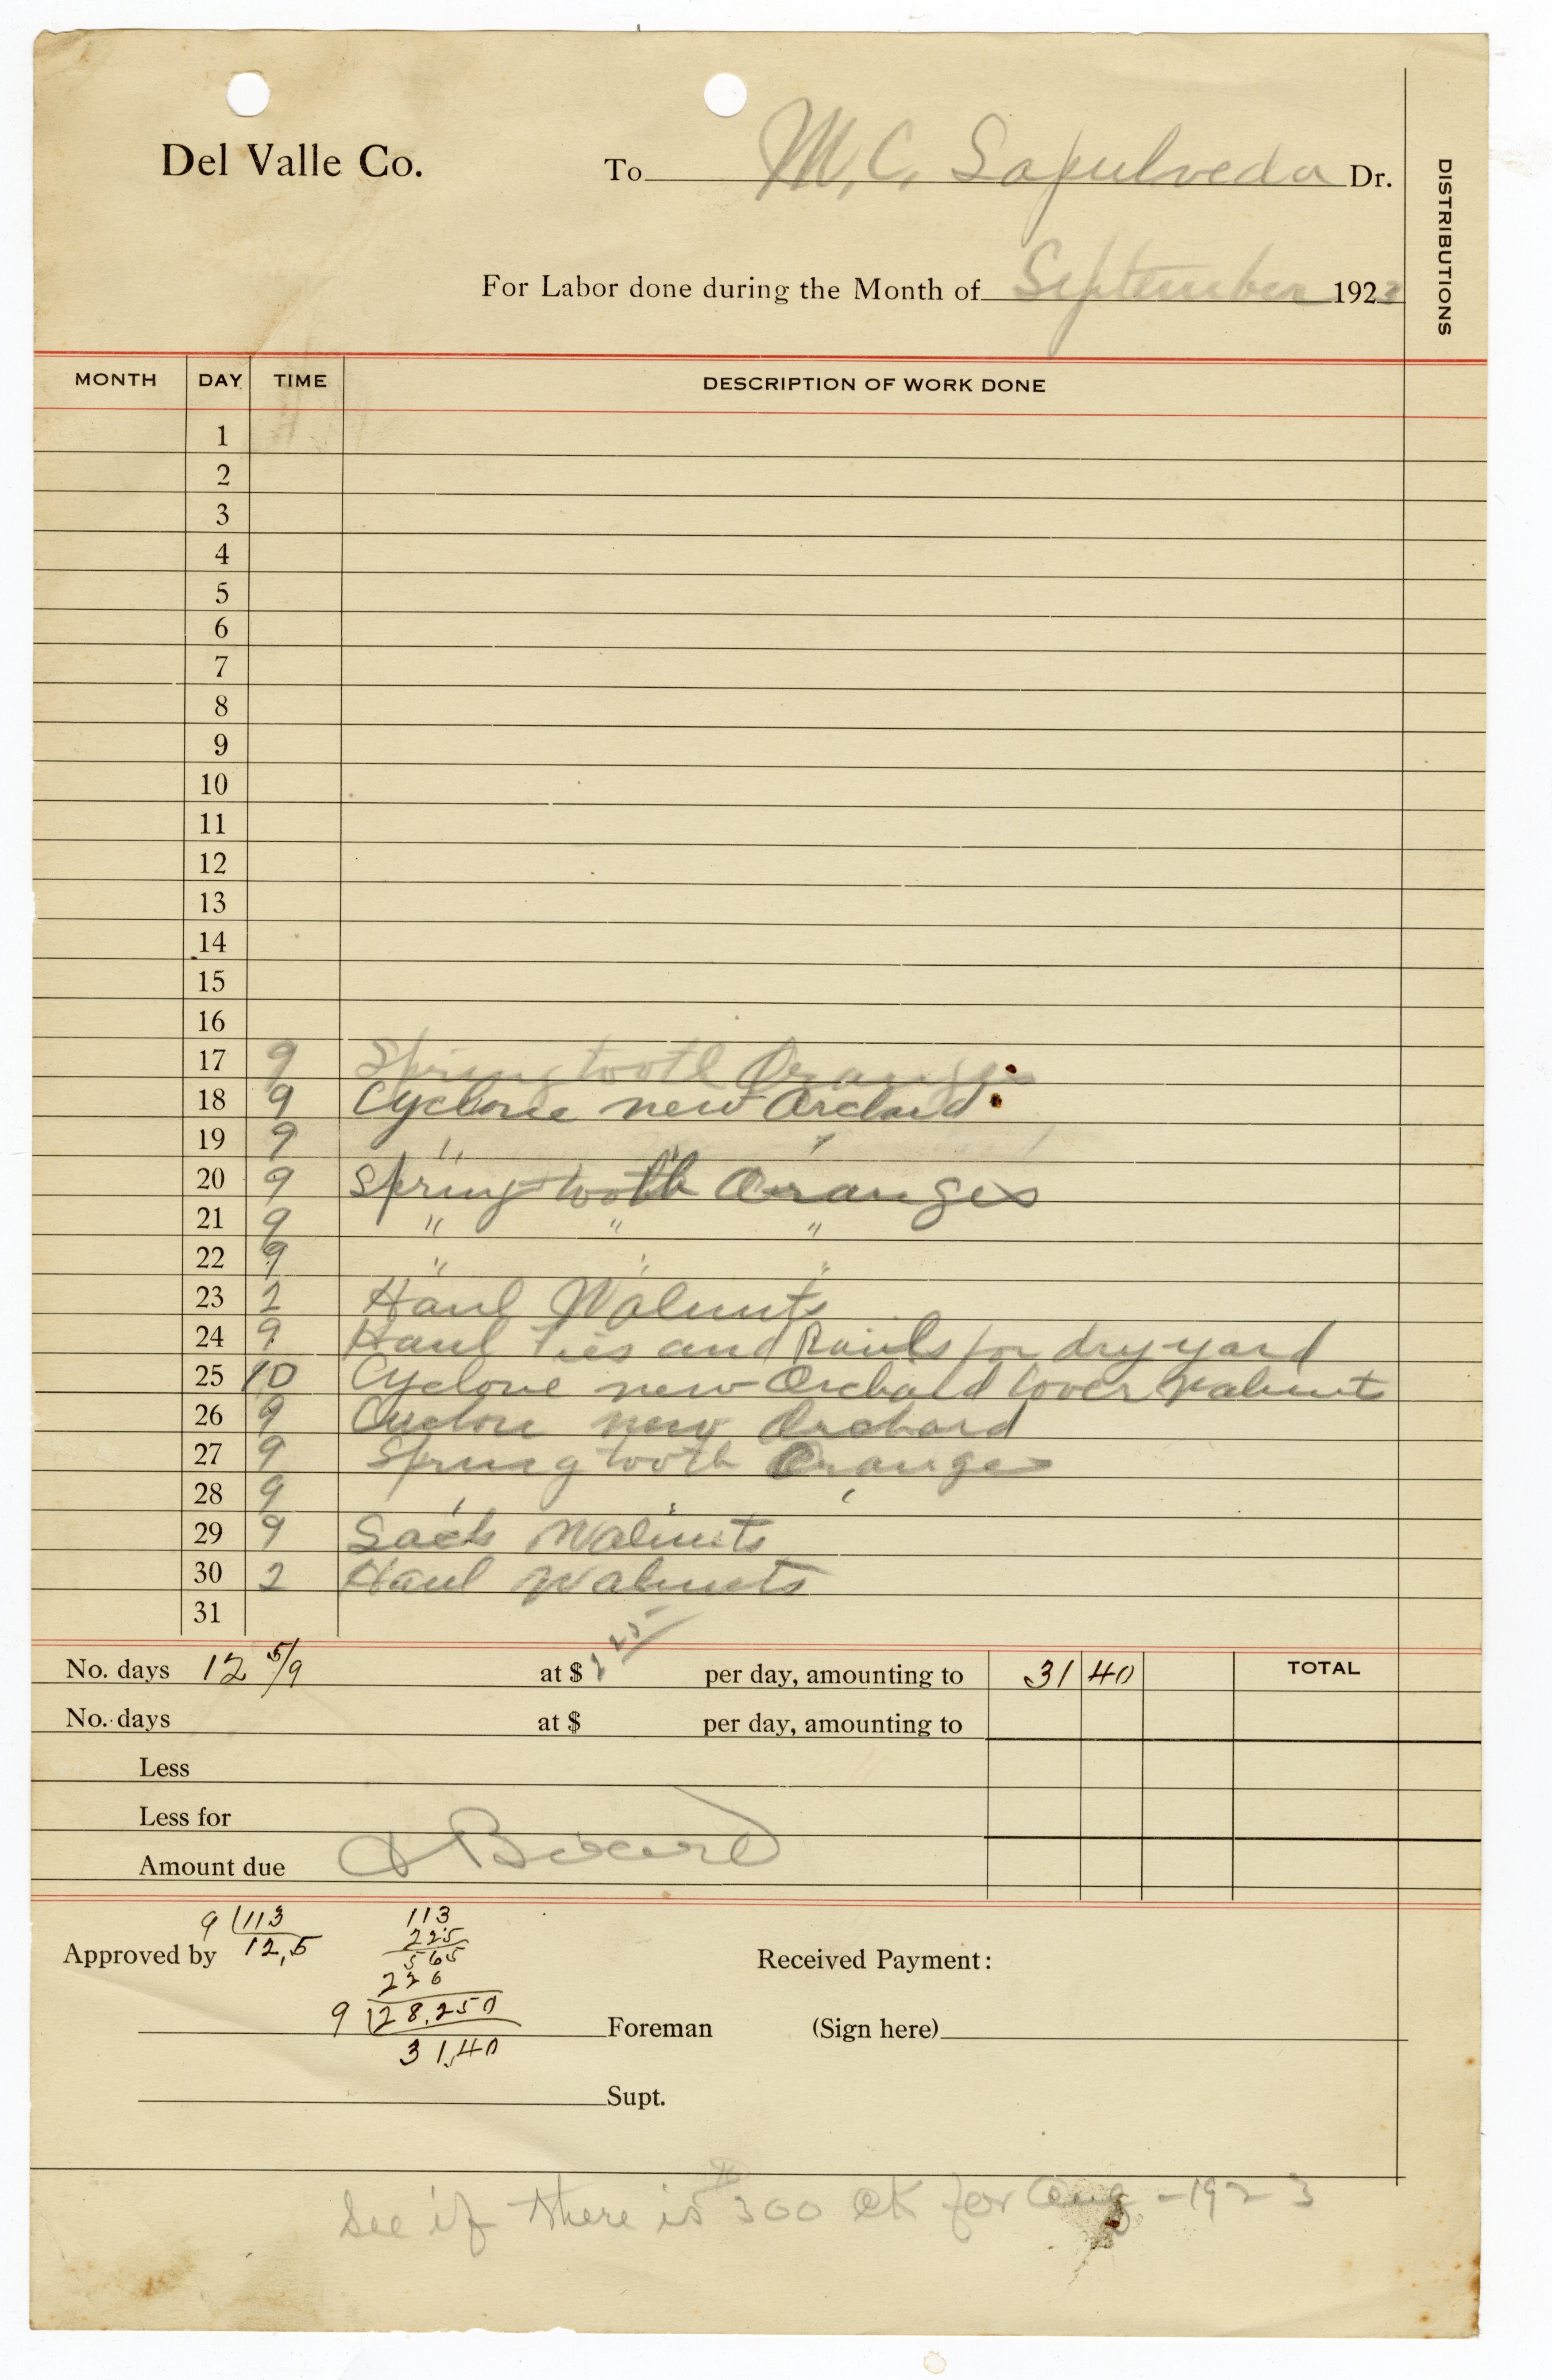 Del Valle Co. To M. C. Sapulveda Dr.
DISTRIBUTIONS
For Labor done during the Month of September 1923
MONTH DAY TIME DESCRIPTION OF WORK DONE
1
2
3
4
5
6
7
8
9
10
11
12
13
14
15
16
17 9 Spring tooth Oranges
18 9 Cyclone new Orchard
19 9 " " "
20 9 Spring tooth Oranges
21 9 " " "
22 9 " " "
23 2 Haul Walnuts
24 9 Haul Ties and Rails for dry yard
25 10 Cyclone new Orchard Cover Walnuts
26 9 Cyclone new Orchard
27 9 Spring tooth Oranges
28 9 " " "
29 9 Sack Walnuts
30 2 Haul Walnuts
31
No. days 12 5/9 at $ 2 25 per day, amounting to 31 40 TOTAL
No. days at $ per day, amounting to
Less
Less for
Amount due
9 113 113
Approved by 12,5 225
565
226
Received Payment:
9 28,250
Foreman (Sign here)
31,40
Supt.
See if there is $300 ck for Aug - 1923